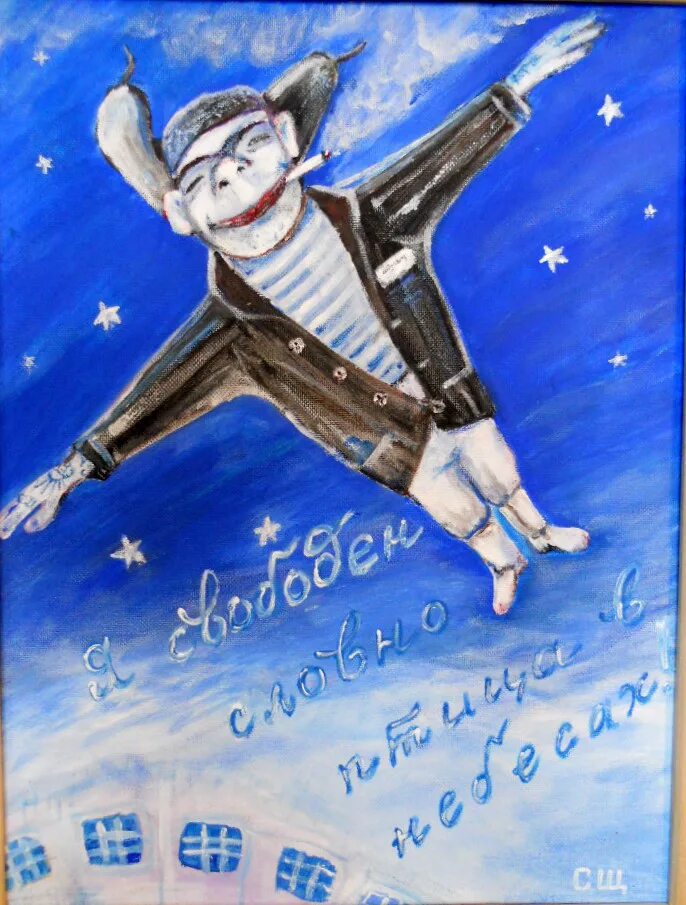 Я свободен
словно
птица в
небесах!
С.Щ